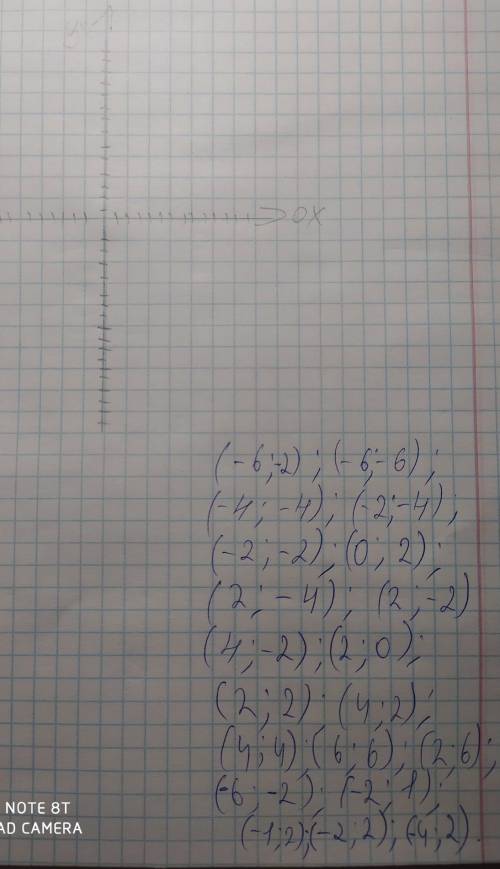 y
OX
(-6;-2); (-6;-6);
(-4; -4); (-2;-4);
(-2; -2); (0; 2);
(2; -4); (2; -2)
(4; -2); (2; 0);
(2; 2); (4; 2);
(4; 4); (6; 6); (2; 6);
(-6; -2); (-2; 1);
(-1; 2); (-2; 2); (-4; 2).
NOTE 8T
AD CAMERA